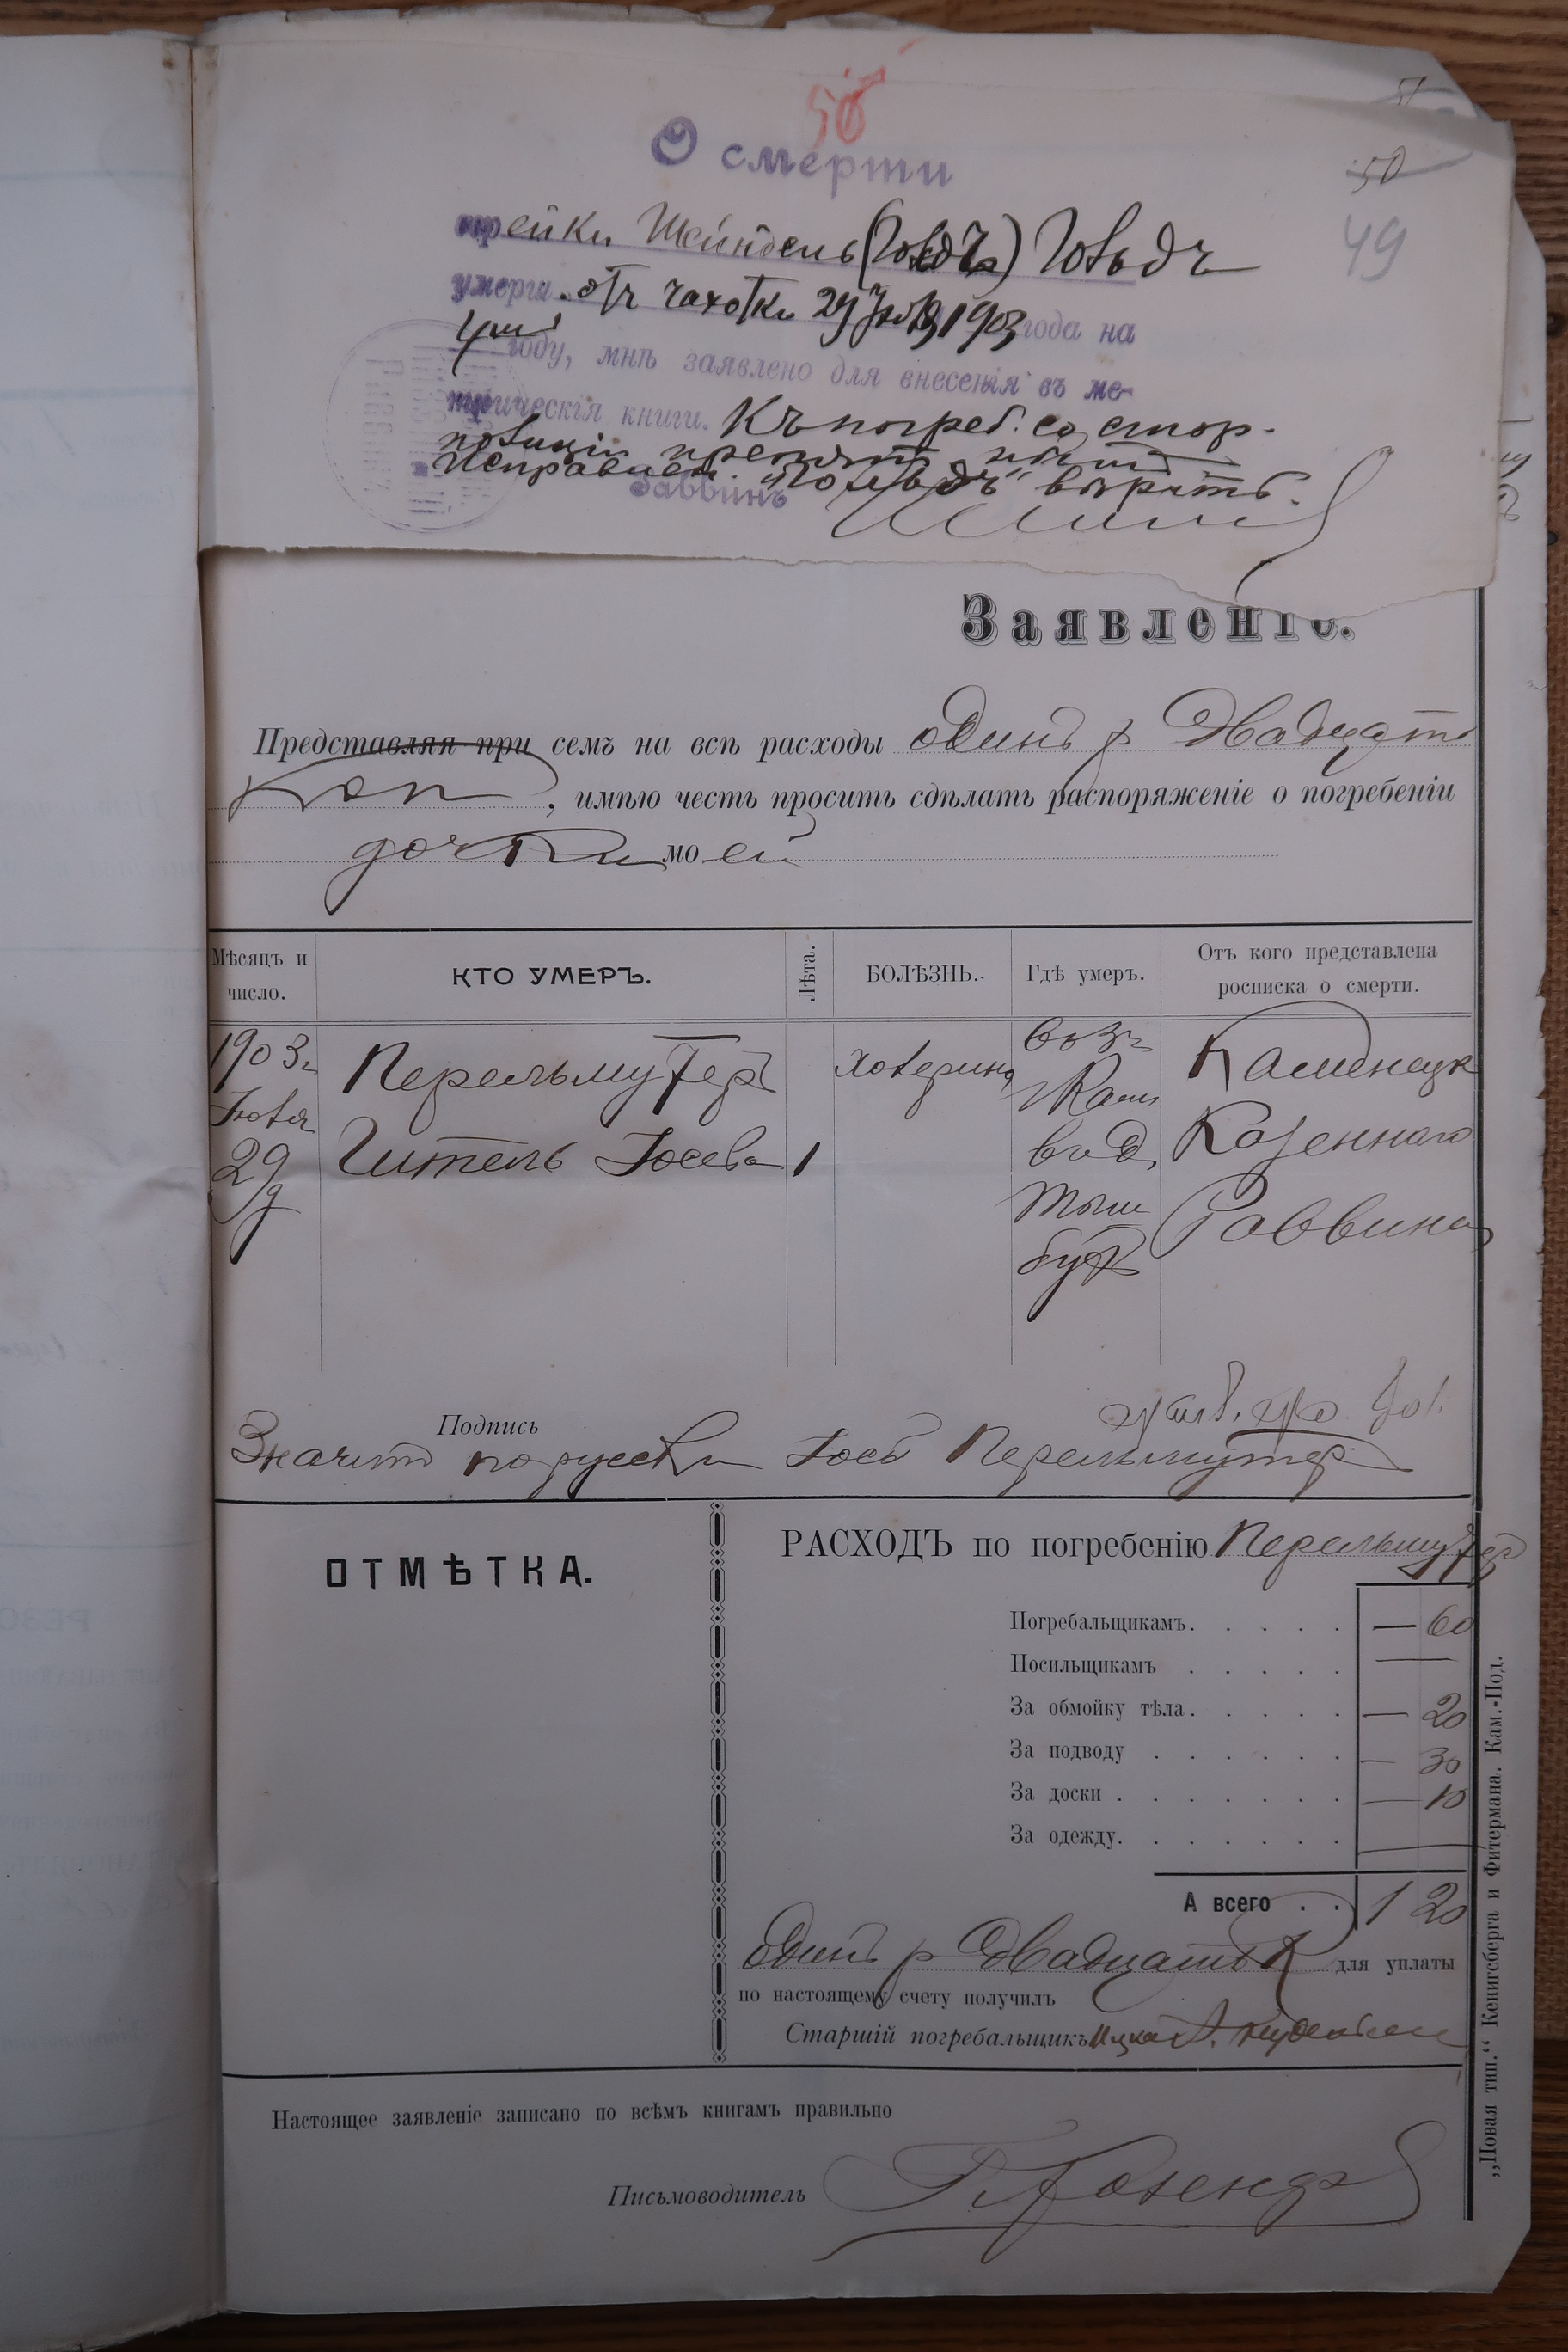 50
51
50
49
О смерти
Шейндель (Гольдъ) Гольдъ
умерла отъ чахотки 29 Іюля 1903 года на
году, мнѣ заявлено для внесенія въ ме-
трическія книги. Къ погреб. со стор.
полиціи препятст. нѣтъ
Исправлен. „Гольдъ“ вѣрить.
Раввинъ
Заявленіе.
Представляя при семъ на всѣ расходы одинъ р Двадцать
коп, имѣю честь просить сдѣлать распоряженіе о погребеніи
дочки моей
Мѣсяцъ и число. КТО УМЕРЪ. Лѣта. БОЛѢЗНЬ. Гдѣ умеръ. Отъ кого представлена росписка о смерти.
1903 г Перельмутеръ холерина Каменецк
Іюля Гитель Іосева 1 Казеннаго
29 Раввина
Подпись
Значит по русски Іось Перельмутер
ОТМѢТКА.
РАСХОДЪ по погребенію Перельмутер
Погребальщикамъ. — 60
Носильщикамъ —
За обмойку тѣла. — 20
За подводу — 30
За доски — 10
За одежду. —
А всего 1 20
Одинъ р Двадцать к для уплаты
по настоящему счету получилъ
Старшій погребальщикъ Ицка
Настоящее заявленіе записано по всѣмъ книгамъ правильно
Письмоводитель
„Новая тип.“ Кенигсберга и Фитермана. Кам.-Под.